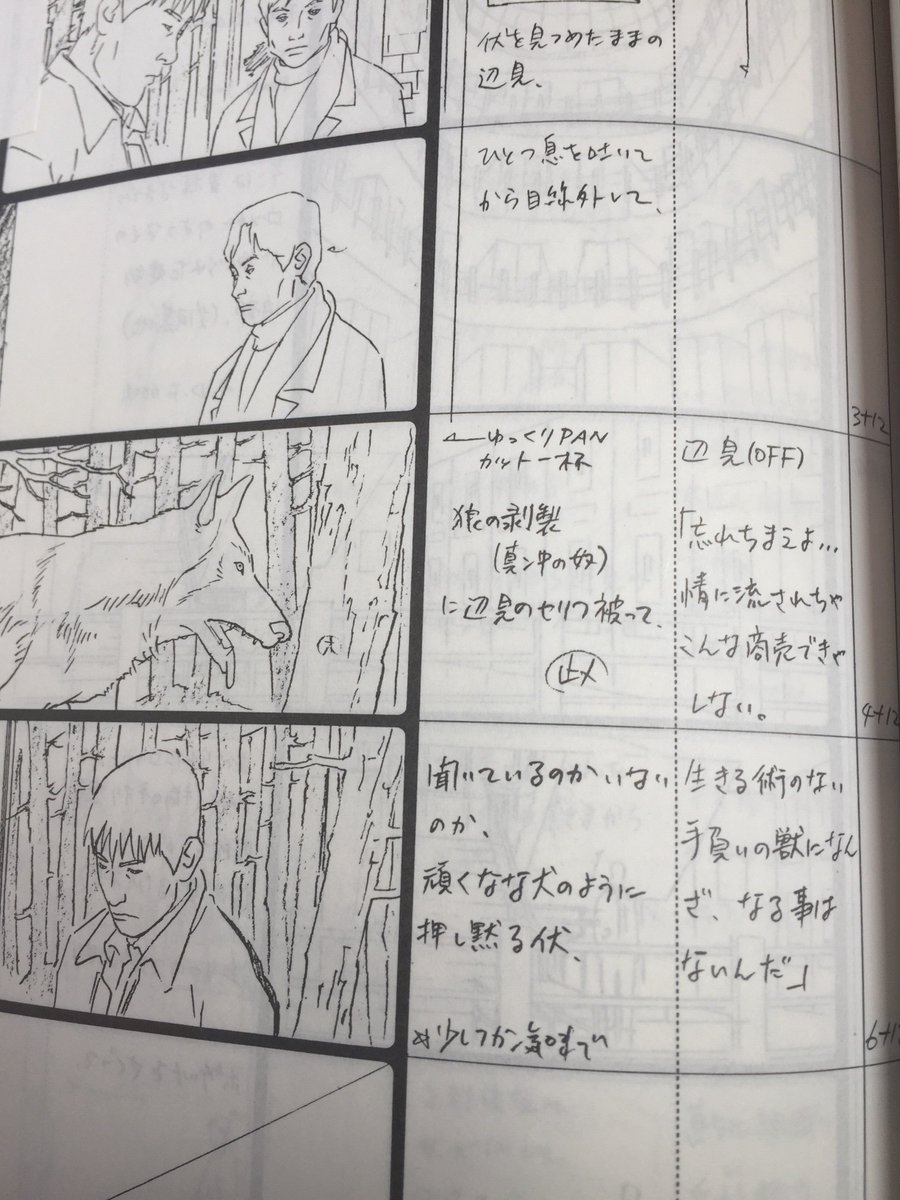 伏を見つめたままの
辺見、
ひとつ息を吐いて
から目線外して、
3+12
ゆっくりPAN
カット一杯
狼の剥製
(真ン中の奴)
に辺見のセリフ被って、
止メ
辺見(OFF)
「忘れちまえよ…
情に流されちゃ
こんな商売できゃ
しない。
4+12
聞いているのかいない
のか、
頑くなな犬のように
押し黙る伏、
少しフカン気味で
生きる術のない
手負いの獣になん
ざ、なる事は
ないんだ」